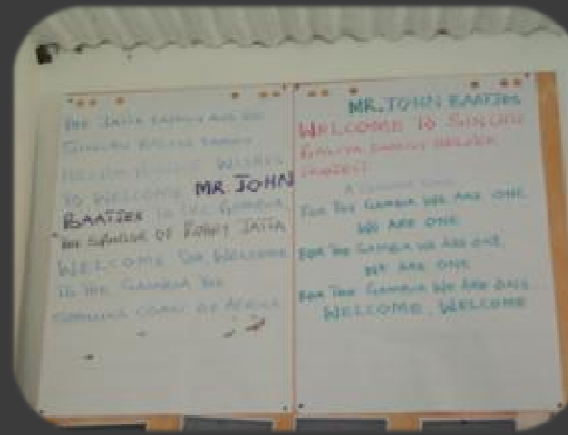 THE JATTA FAMILY AND THE
SINCHU BALIYA FAMILY
WISHES
TO WELCOME MR. JOHN
BAATJES TO THE GAMBIA,
THE SPONSOR OF JATTA
WELCOME SIR, WELCOME
TO THE GAMBIA THE
SMILING COAST OF AFRICA
MR. JOHN BAATJES
WELCOME TO SINCHU
BALIYA FAMILY
PROJECT
FOR THE GAMBIA WE ARE ONE
WE ARE ONE
FOR THE GAMBIA WE ARE ONE,
WE ARE ONE
FOR THE GAMBIA WE ARE ONE
WELCOME, WELCOME